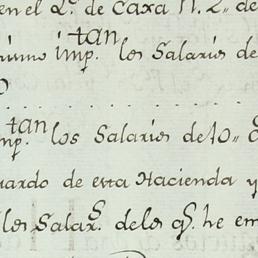 en el L.º de Caxa N. 2.. de
imp.tan les Salaries de
imp.tan los Salaries de 10..
uardo de esta Hacienda y
les Salar.s de les q.s he em